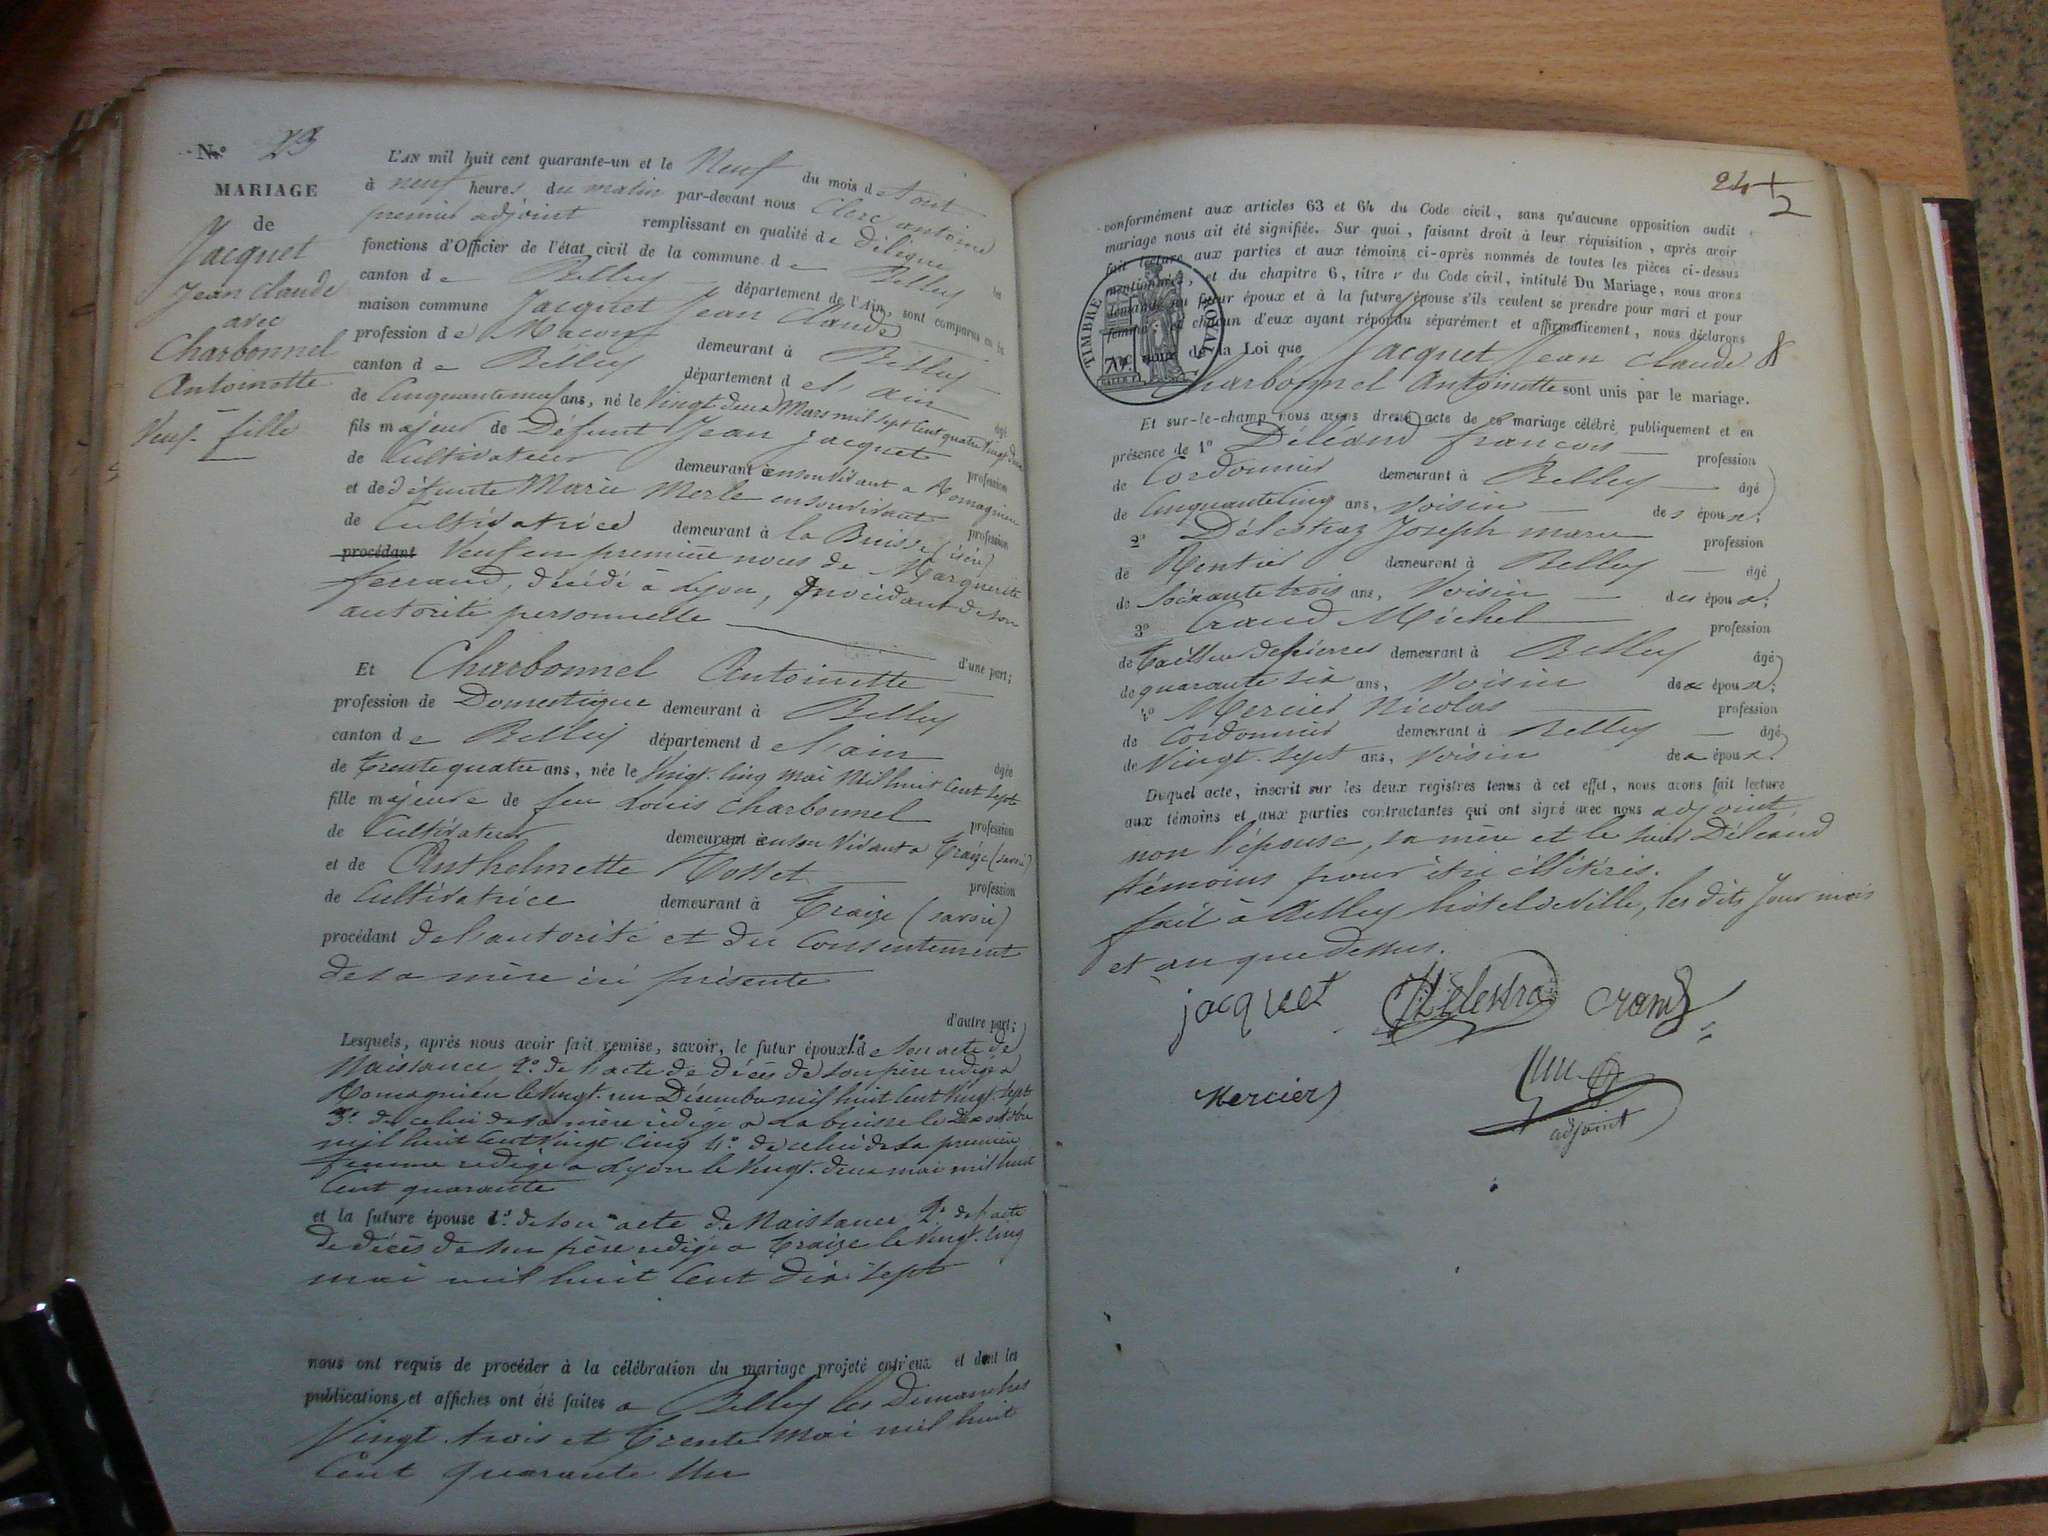 N.° 23
MARIAGE
de
Jacquet
Jean Claude
avec
Charbonnel
Antoinette
Veuf - fille
L'AN mil huit cent quarante-un et le Neuf du mois d'Aout
à neuf heures du matin par-devant nous Clerc antoine
premier adjoint remplissant en qualité de délégué les
fonctions d'Officier de l'état civil de la commune de Belley
canton de Belley département de l'Ain, sont comparus en la
maison commune Jacquet Jean Claude
profession de Macon demeurant à Belley
canton de Belley département de l'ain âgé
de Cinquanteneuf ans, né le Vingt deux Mars mil sept Cent quatre Vingt deux
fils majeur de Défunt Jean jacquet profession
de Cultivateur demeurant ensonvivant a Romagnieu
et de défunte Marie Merle ensonvivant profession
de Cultivatrice demeurant à la Buisse (isère)
procédant Veuf en première nous de Marguerite
ferraud, décédé à Lyon, Procédant de son
autorité personnelle
d'une part;
Et Charbonnel Antoinette
profession de Domestique demeurant à Belley
canton de Belley département de l'ain âgée
de trente quatre ans, née le Vingt-Cinq mai Mil huit Cent Sept
fille majeure de feu Louis Charbonnel profession
de Cultivateur demeurant ensonvivant a traize (savoie)
et de Anthelmette Rosset profession
de Cultivatrice demeurant à Traize (savoie)
procédant de l'autorité et du Consentement
de sa mère ici présente
d'autre part;
Lesquels, après nous avoir fait remise, savoir, le futur époux 1.° de son acte de
Naissance 2.° de l'acte de décès de son père rédigé a
Romagnieu le Vingt-un Décembre mil huit Cent Vingt-Sept
3.° de celui de sa mère rédigé a La buisse le deux octobre
mil huit Cent Vingt Cinq 4.° de celui de sa première
femme rédigé a Lyon le Vingt-deux mai mil huit
Cent quarante
et la future épouse 1.° de son acte de Naissance 2.° de l'acte
de décès de son père rédigé a traize le Vingt-Cinq
mai mil huit Cent dix-Sept
nous ont requis de procéder à la célébration du mariage projeté entr'eux et dont les
publications et affiches ont été faites a Belley les Dimanches
Vingt-trois et trente Mai mil huit
Cent quarante Un
24 +
2
conformément aux articles 63 et 64 du Code civil, sans qu'aucune opposition audit
mariage nous ait été signifiée. Sur quoi, faisant droit à leur réquisition, après avoir
fait lecture aux parties et aux témoins ci-après nommés de toutes les pièces ci-dessus
mentionnées, et du chapitre 6, titre v du Code civil, intitulé Du Mariage, nous avons
demandé au futur époux et à la future épouse s'ils veulent se prendre pour mari et pour
femme et chacun d'eux ayant répondu séparément et affirmativement, nous déclarons
TIMBRE ROYAL
Au nom de la Loi que Jacquet Jean Claude &
Charbonnel Antoinette sont unis par le mariage.
Et sur-le-champ nous avons dressé acte de ce mariage célébré publiquement et en
présence de 1° Déléand françois profession
de Cordonnier demeurant à Belley âgé
de Cinquantecinq ans, Voisin des époux;
2° Délestraz Joseph marie profession
de Rentier demeurant à Belley âgé
de Soixante trois ans, Voisin des époux;
3° Craud Michel profession
de tailleur de pierres demeurant à Belley âgé
de quarante six ans, Voisin des époux;
4° Mercier Nicolas profession
de Cordonnier demeurant à Belley âgé
de Vingt-Sept ans, Voisin des époux.
Duquel acte, inscrit sur les deux registres tenus à cet effet, nous avons fait lecture
aux témoins et aux parties contractantes qui ont signé avec nous adjoint
non l'épouse, sa mère et le sieur Déléand
témoins pour être illitérés.
fait à Belley hôtel de Ville, les dits Jour mois
et an que dessus.
jacquet Délestra Craud
Mercier
adjoint